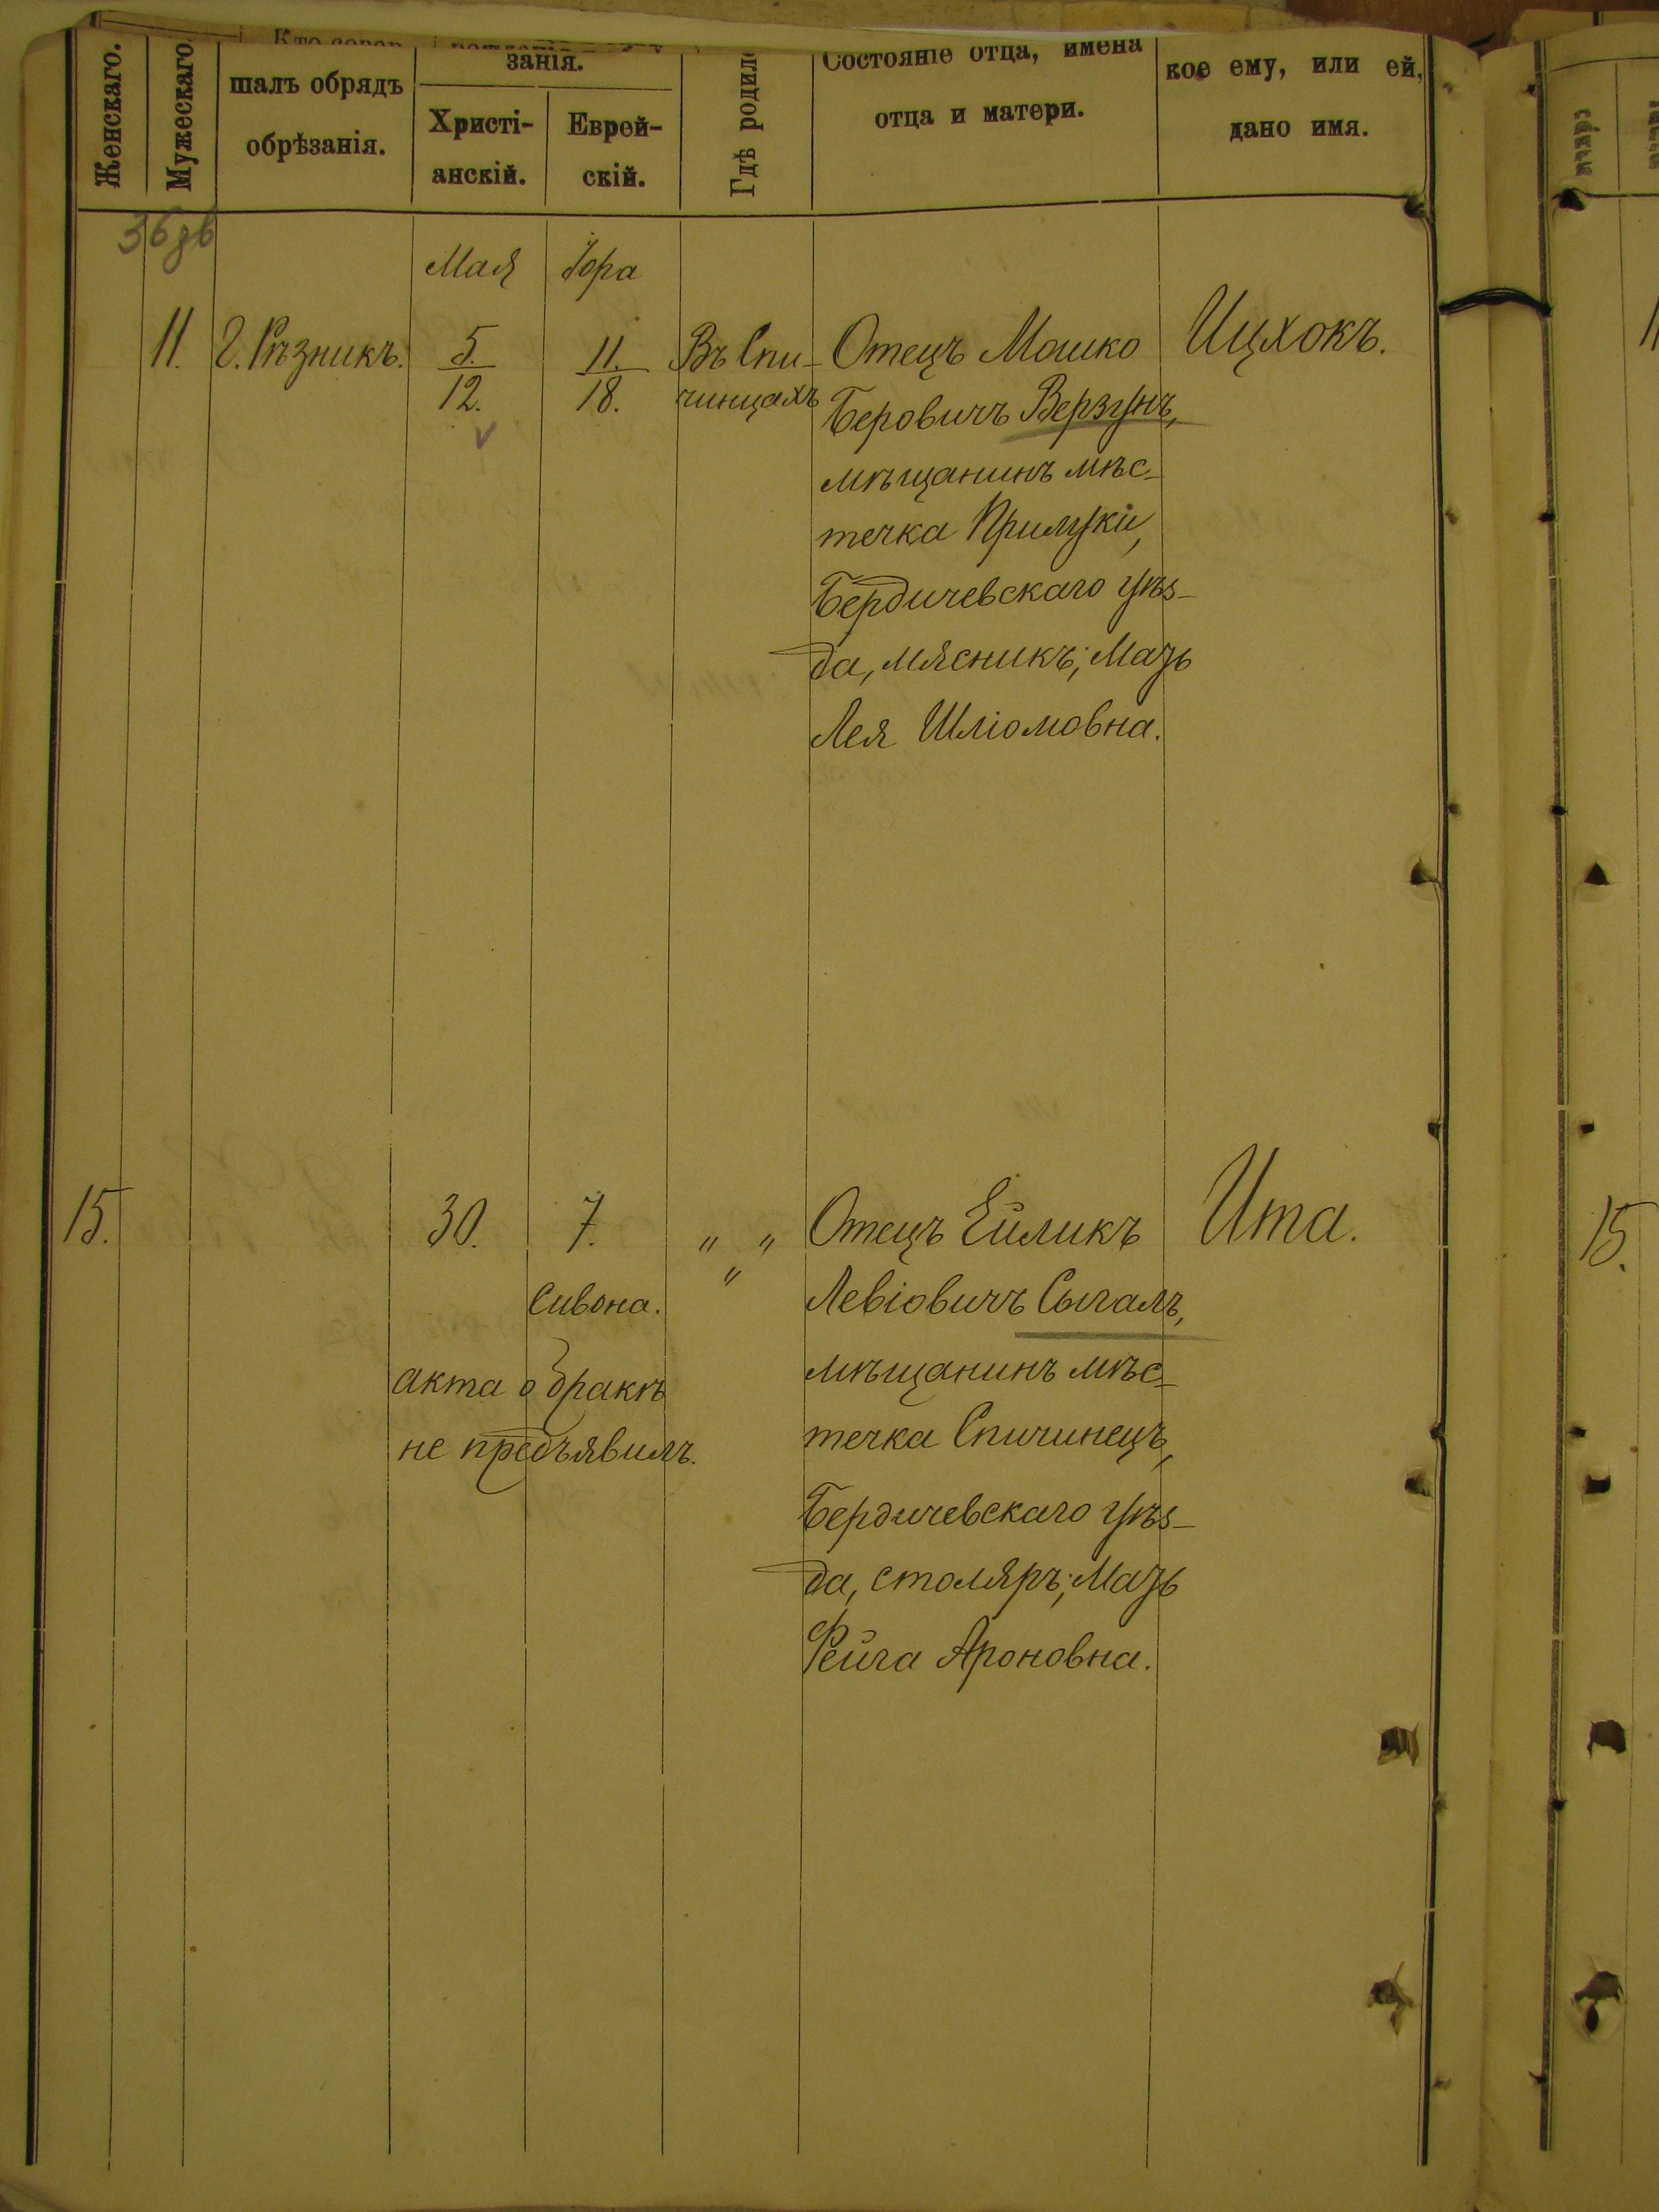 Женскаго.
Мужескаго.
шалъ обрядъ
обрѣзанія.
занія.
Христі-
анскій.
Еврей-
скій.
Гдѣ родил
Состояніе отца, имена
отца и матери.
кое ему, или ей,
дано имя.
Мая
Іора
11.
Г. Рѣзникъ.
5.
12.
11.
18.
Въ Спи-
чинцахъ
Отецъ Мошко
Беровичъ Верзунъ,
мѣщанинъ мѣс-
течка Прилуки,
Бердичевскаго уѣз-
да, мясникъ; Мать
Лея Шліомовна.
Ицхокъ.
15.
30.
7.
Сивона.
акта о бракѣ
не предъявилъ.
" "
"
Отецъ Ейликъ
Левіовичъ Сыгалъ,
мѣщанинъ мѣс-
течка Спичинецъ,
Бердичевскаго уѣз-
да, столяръ; Мать
Фейга Ароновна.
Ита.
15.